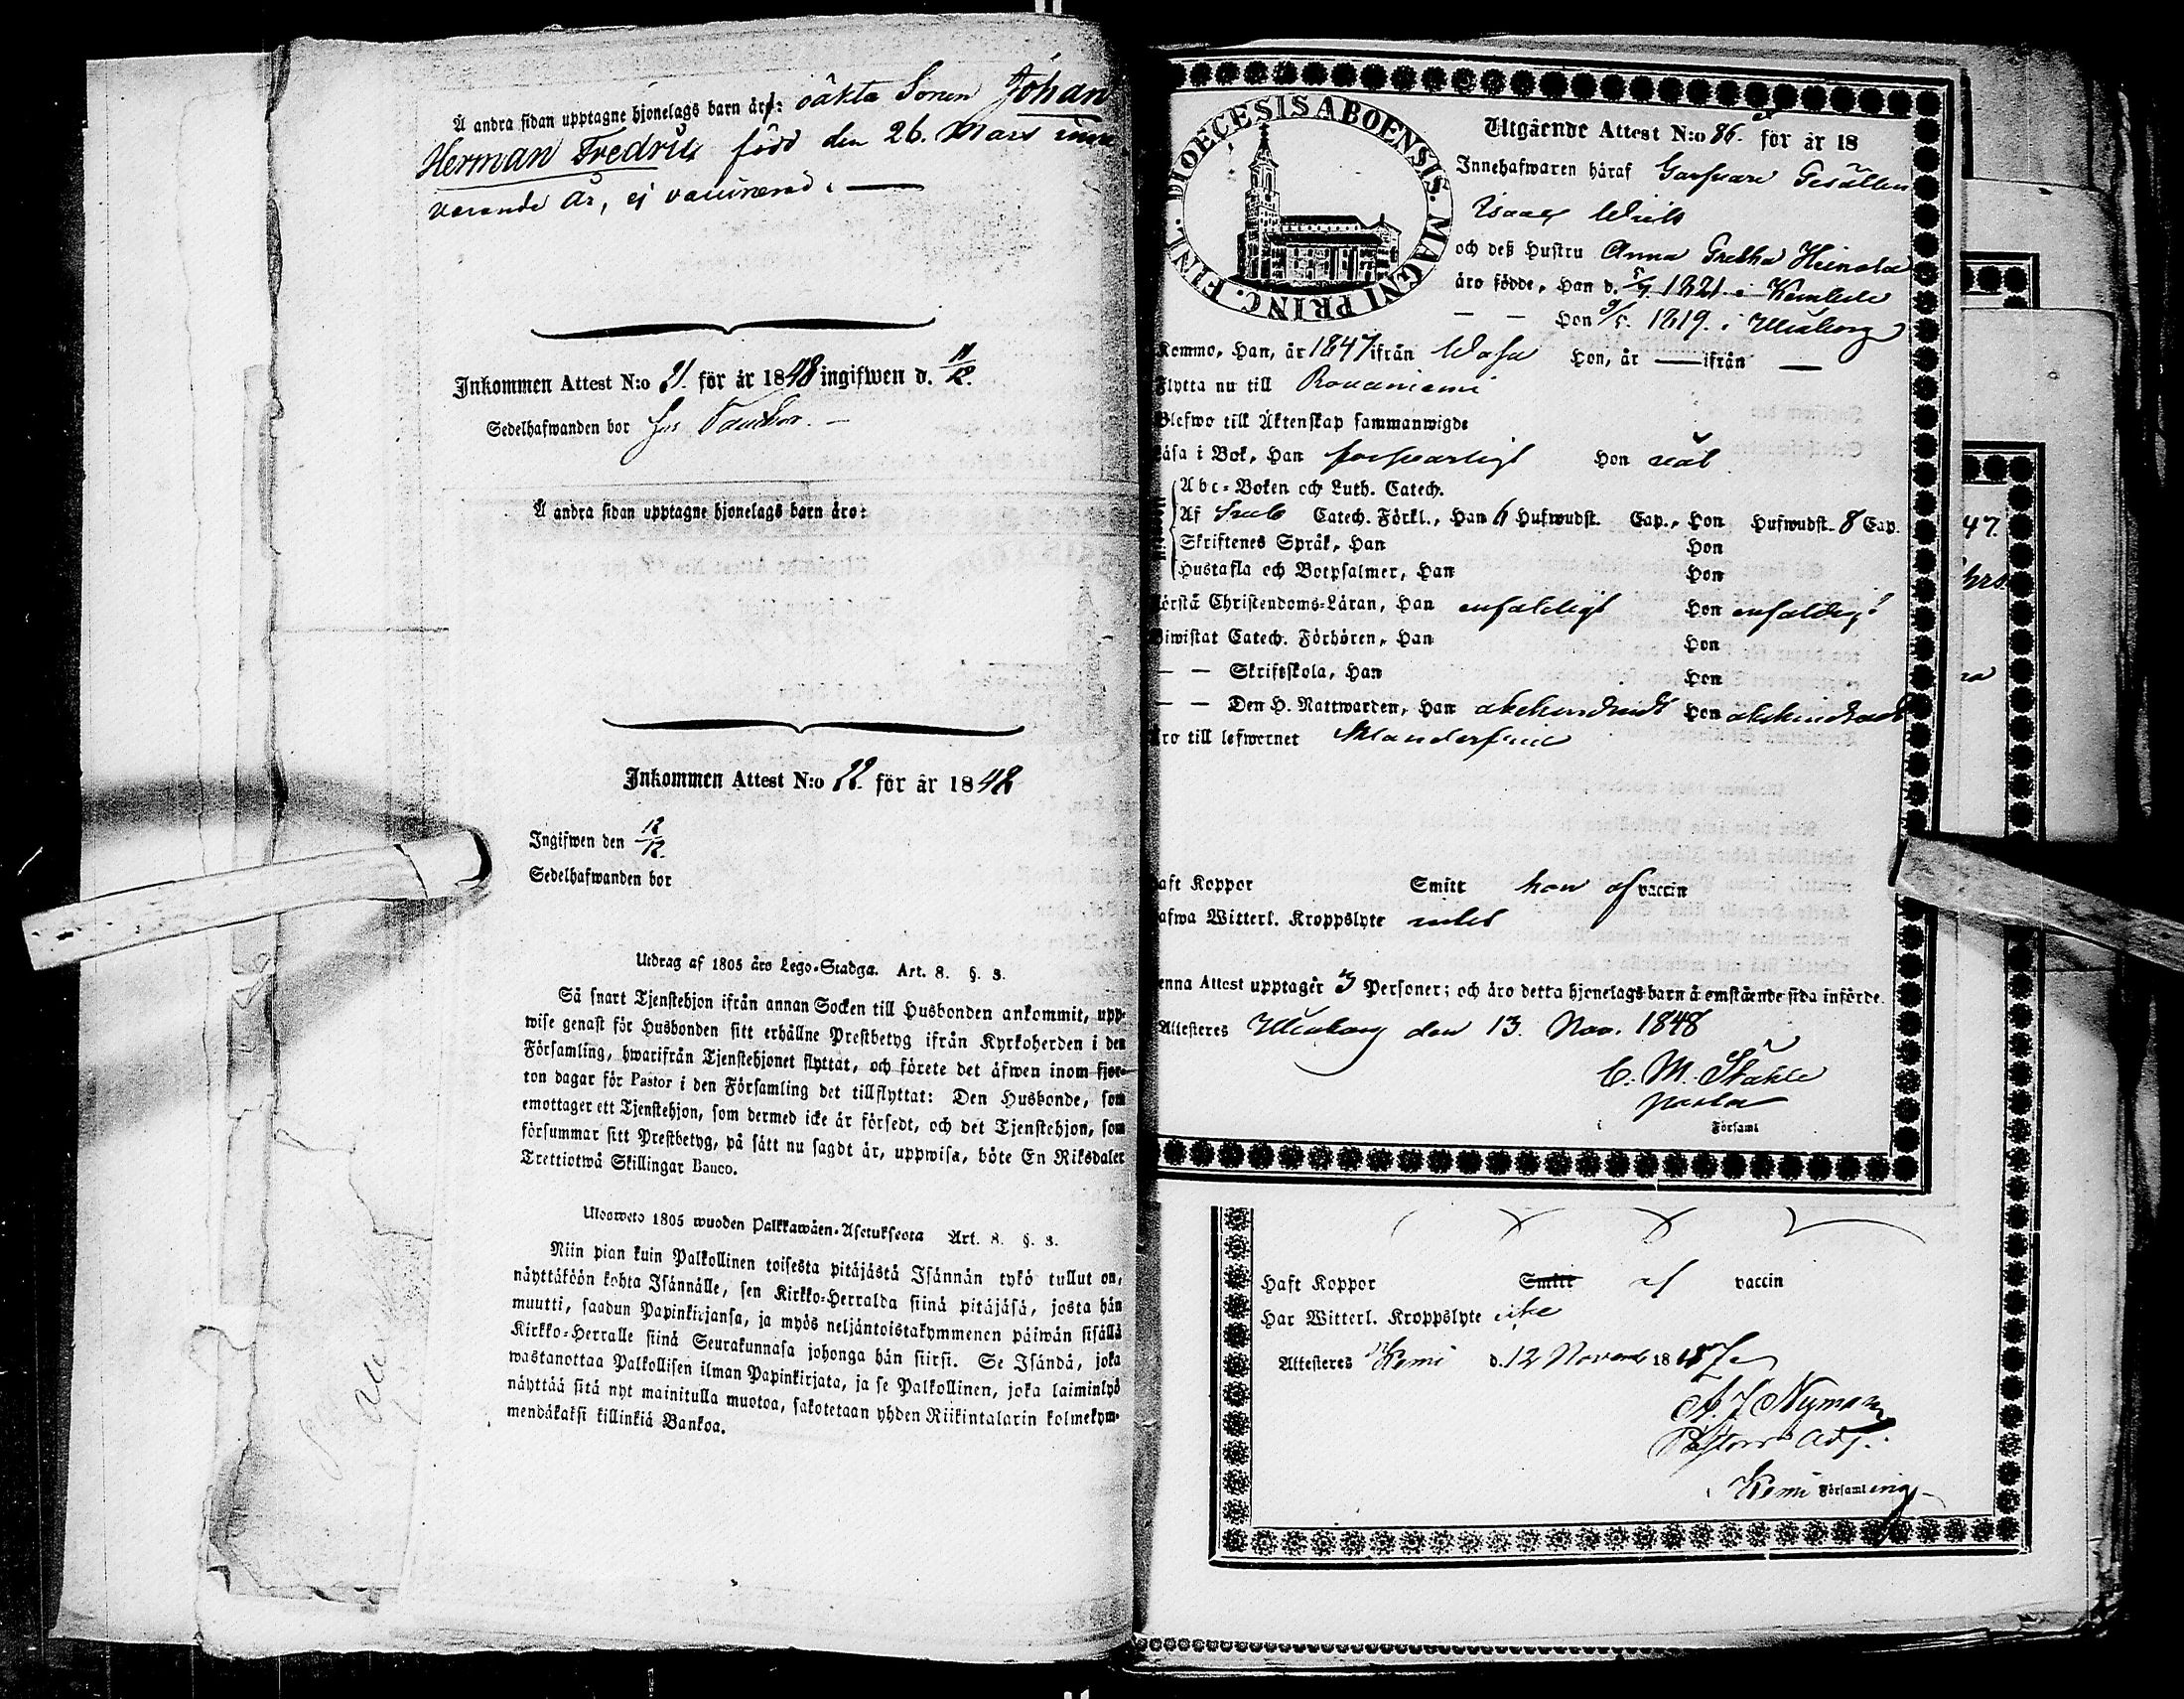 Å andra sidan upptagne hjonelags barn äro: oäkta Sonen Johan
Herman Fredric född den 26. Mars inne
varande år, ej vaccinerad.
Inkommen Attest N:o 21. för år 1848 ingifwen d. 11/12.
Sedelhafwanden bor hos
Å andra sidan upptagne hjonelags barn äro:
Inkommen Attest N:o 22. för år 1848
Ingifwen den 12/12.
Sedelhafwanden bor
Utdrag af 1805 års Lego-Stadga. Art. 8. §. 3.
Så snart Tjenstehjon ifrån annan Socken till Husbonden ankommit, upp-
wise genast för Husbonden sitt erhållne Prestbetyg ifrån Kyrkoherden i den
Församling, hwarifrån Tjenstehjonet flyttat, och förete det äfwen inom fjor-
ton dagar för Pastor i den Församling det tillflyttat: Den Husbonde, som
emottager ett Tjenstehjon, som dermed icke är försedt, och det Tjenstehjon, som
försummar sitt Prestbetyg, på sätt nu sagdt är, uppwisa, böte En Riksdaler
Trettiotwå Skillingar Banco.
Ulosweto 1805 wuoden Palkkawäen-Asetuksesta Art. 8. §. 3.
Niin pian kuin Palkollinen toisesta pitäjästä Isännän tykö tullut on,
näyttäköön kohta Isännälle, sen Kirkko-Herralda siinä pitäjäsä, josta hän
muutti, saadun Papinkirjansa, ja myös neljäntoistakymmenen päiwän sisällä
Kirkko-Herralle siinä Seurakunnasa johonga hän siirsi. Se Isändä, joka
wastanottaa Palkollisen ilman Papinkirjata, ja se Palkollinen, joka laiminlyö
näyttää sitä nyt mainitulla muotoa, sakotetaan yhden Riikintalarin kolmekym-
mendäkaksi killinkiä Bankoa.
DIOECESIS ABOENSIS. MAGNI PRINC. FINL.
Utgående Attest N:o 86. för år 18
Innehafwaren häraf Garfware Gesällen
Isaac
och deß Hustru Anna Gretha Heinola
äro födde, Han d. 5/7. 1821. i Kembele
— — Hon 9/5. 1819. i Uleåborg
Kommo, Han, år 1847 ifrån Wasa Hon, år — ifrån —
Flytta nu till Rovaniemi
Blefwo till Äktenskap sammanwigde
Läsa i Bok, Han försvarligt Hon wäl
Abc-Boken och Luth. Catech.
Af Sveb Catech. Förkl., Han 6 Hufwudst. Cap., Hon Hufwudst. 8 Cap.
Skriftenes Språk, Han Hon
Hustafla och Botpsalmer, Han Hon
Förstå Christendoms-Läran, Han enfaldigt Hon enfaldigt
Biwistat Catech. Förhören, Han Hon
— — Skriftskola, Han Hon
— — Den H. Nattwarden, Han obehindradt Hon obehindradt
Äro till lefwernet klanderfrie
Haft Koppor Smitt hon af vaccin
Hafwa Witterl. Kroppslyte intet
Denna Attest upptager 3 Personer; och äro detta hjonelags barn å omstående sida införde.
Attesteres Uleåborg den 13. Nov. 1848
C. M. Ståhle
Pastor
i Församl
47.
Haft Koppor Smitt af vaccin
Har Witterl. Kroppslyte icke
Attesteres Kemi d. 12 Novemb 1847
A. J. Nyman
Pastors Adj.
i Kemi Församling